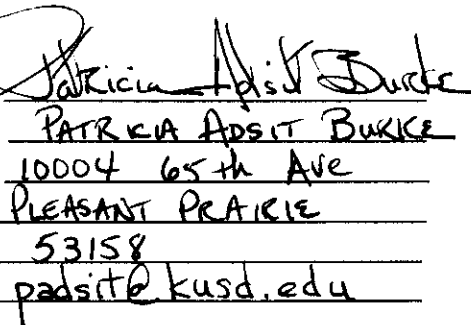 Patricia Adsit Burke
PATRICIA ADSIT BURKE
10004 65th Ave
PLEASANT PRAIRIE
53158
padsit@kusd.edu